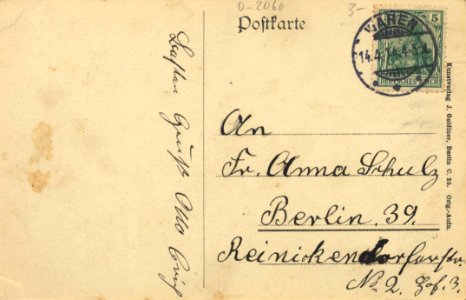 0-2060
3-
Postkarte
WAREN
14.4.14.
5
DEUTSCHES REICH
Gruß Otto
An
Fr. Anna Schulz
Berlin. 39.
Reinickendorferstr
No. 2. Hof. 3.
Kunstverlag J. Goldiner, Berlin C. 25. Orig.-Aufn.